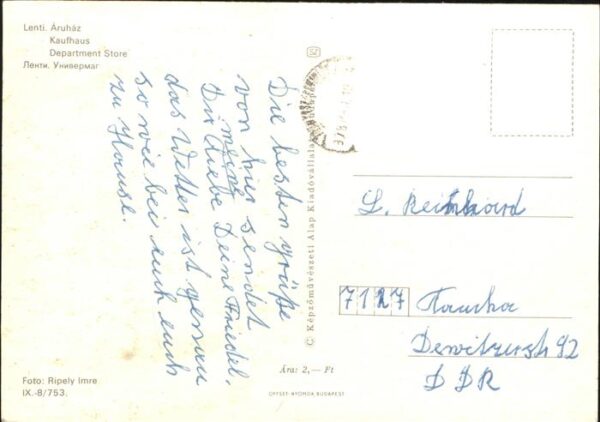 Lenti. Áruház
Kaufhaus
Department Store
Ленти. Универмаг
Die besten grüße
von hier sendet
Dir
mein Liebe Deine Friedel.
das Wetter ist genau
so wie bei euch auch
zu Hause.
Foto: Ripely Imre
IX.-8/753.
© Képzőművészeti Alap Kiadóvállalata, Budapest
Ára: 2,— Ft
OFFSET NYOMDA BUDAPEST
L. Reinhard
7127 Taucha
Dewitzerstr 92
DDR